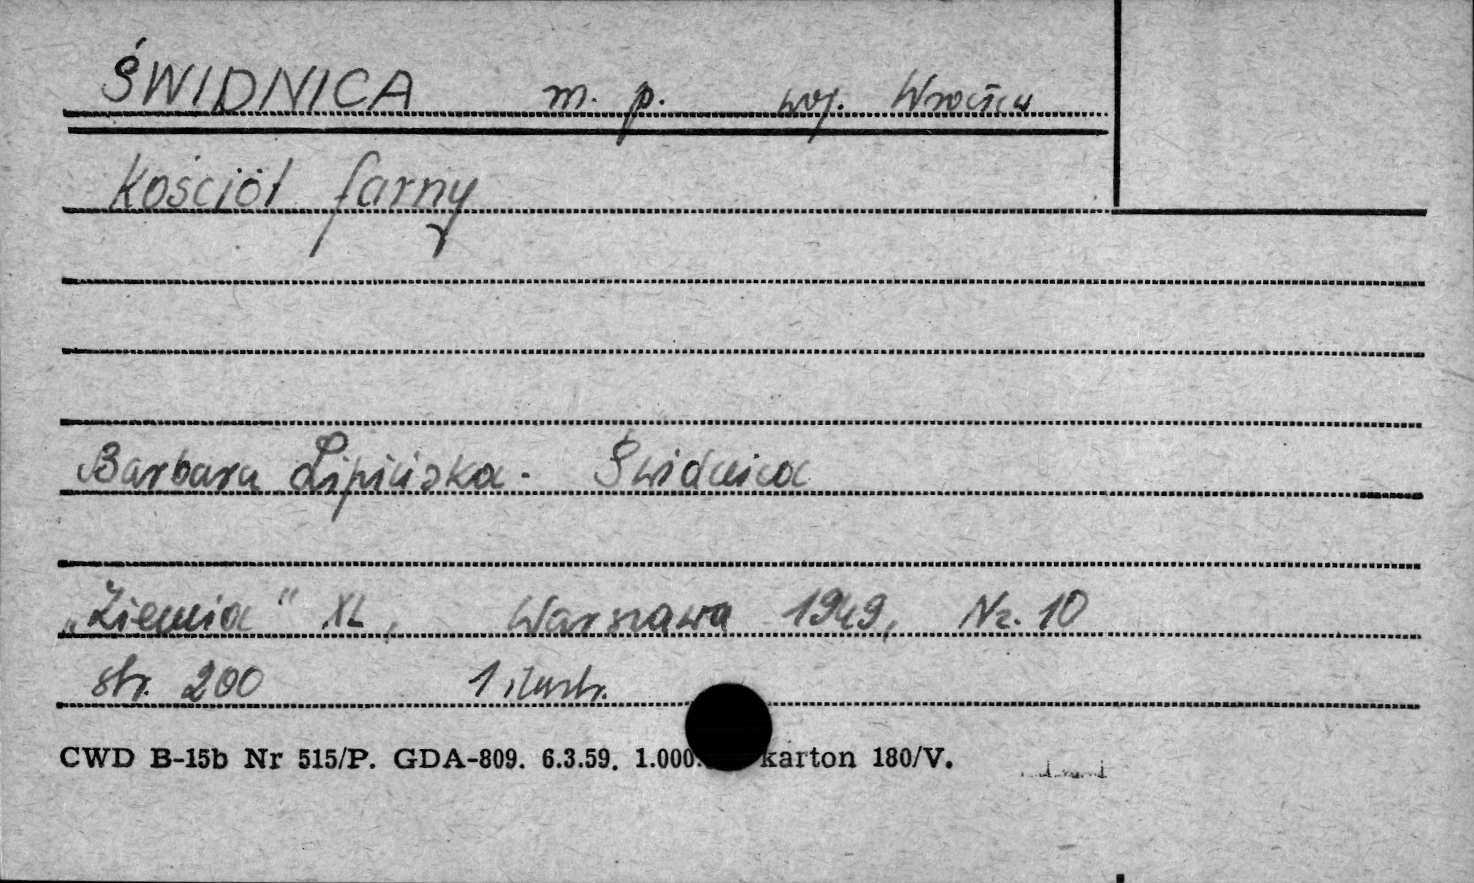 ŚWIDNICA m. p. woj. Wrocław
Kościół farny
Barbara Lipińska. Świdnica
„Ziemia" XL, Warszawa 1949, Nr. 10
str. 200 1 ilustr.
CWD B-15b Nr 515/P. GDA-809. 6.3.59. 1.000. karton 180/V.